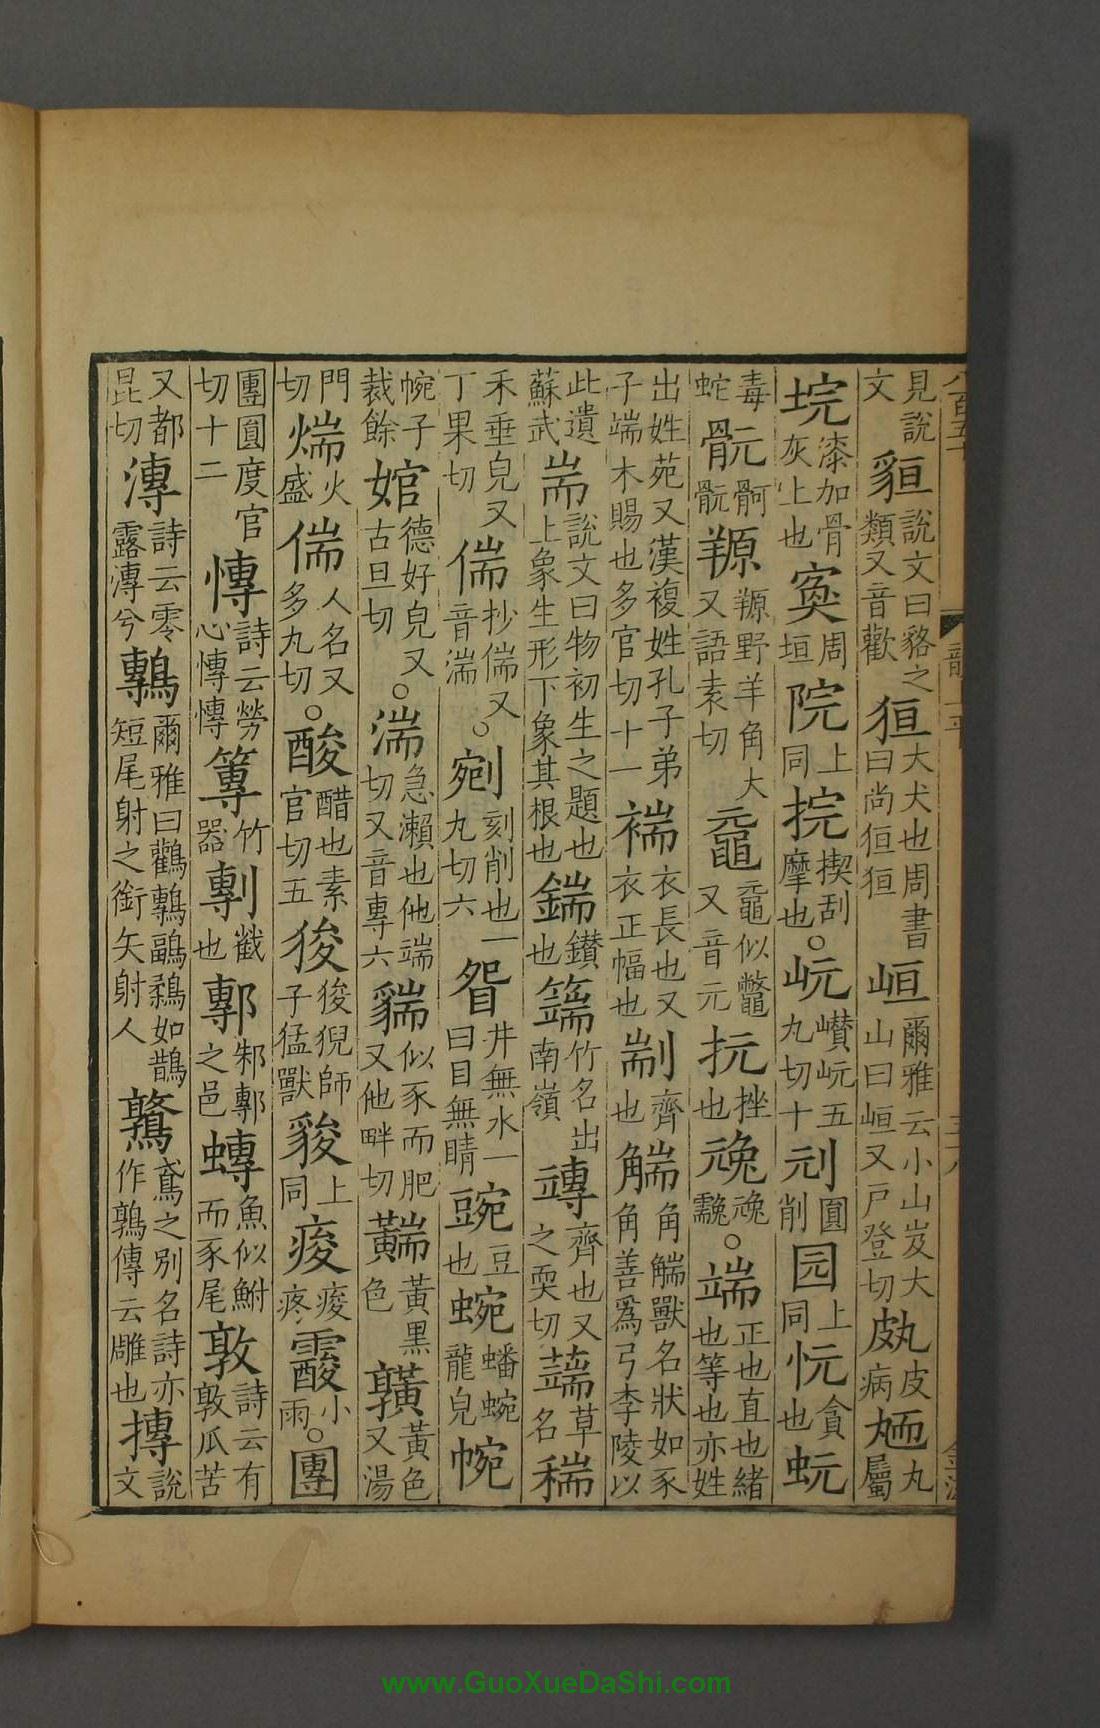 見說文 貆 說文曰貉之類又音歡 狟 大犬也周書曰尚狟狟 峘 爾雅云小山岌大山曰峘又戸登切 𤿦 皮病 𠁁 丸屬
垸 漆加骨灰上也 寏 周垣 院 上同 捖 揳刮摩也○岏 巑岏五丸切十 刓 圓削 园 上同 忨 貪也 蚖
毒蛇 骯 骯骭 羱 羱野羊角大又語袁切 黿 黿似鼈又音元 抏 挫也 ○端 正也直也緒也等也亦姓
出姓苑又漢複姓孔子弟子端木賜也多官切十一 褍 衣長也又衣正幅也 剬 齊也 觿 角觿獸名狀如豕角善爲弓李陵以
此遺蘇武 耑 說文曰物初生之題也上象生形下象其根也 鍴 鑽也 篅 竹名出南嶺 竱 齊也又之耎切 草名 � 
禾垂皃又丁果切 偳 抄偳又音湍○剜 刻削也一丸切六 眢 井無水一曰目無睛 豌 豆也 蜿 蟠蜿龍皃 帵
帵子裁餘 婠 德好皃又古旦切○湍 急瀨也他端切又音專六 貒 似豕而肥又他畔切 黃黑色 黃色又湯
門切 煓 火盛 偳 人名又多九切○酸 醋也素官切五 狻 狻猊師子猛獸 上同 痠 痠疼 霰 小雨○團
團圓度官切十二 慱 詩云勞心慱慱 篿 竹器 剸 截也 鄟 邾鄟之邑 鱄 魚似鮒而豕尾 敦 詩云有敦瓜苦
又都昆切 漙 詩云零露漙兮 鷒 爾雅曰鸛鷒鶝鶔如鵲短尾射之銜矢射人 鷻 鳶之別名詩亦作鶉傳云雕也 摶 說文
www.GuoXueDaShi.com